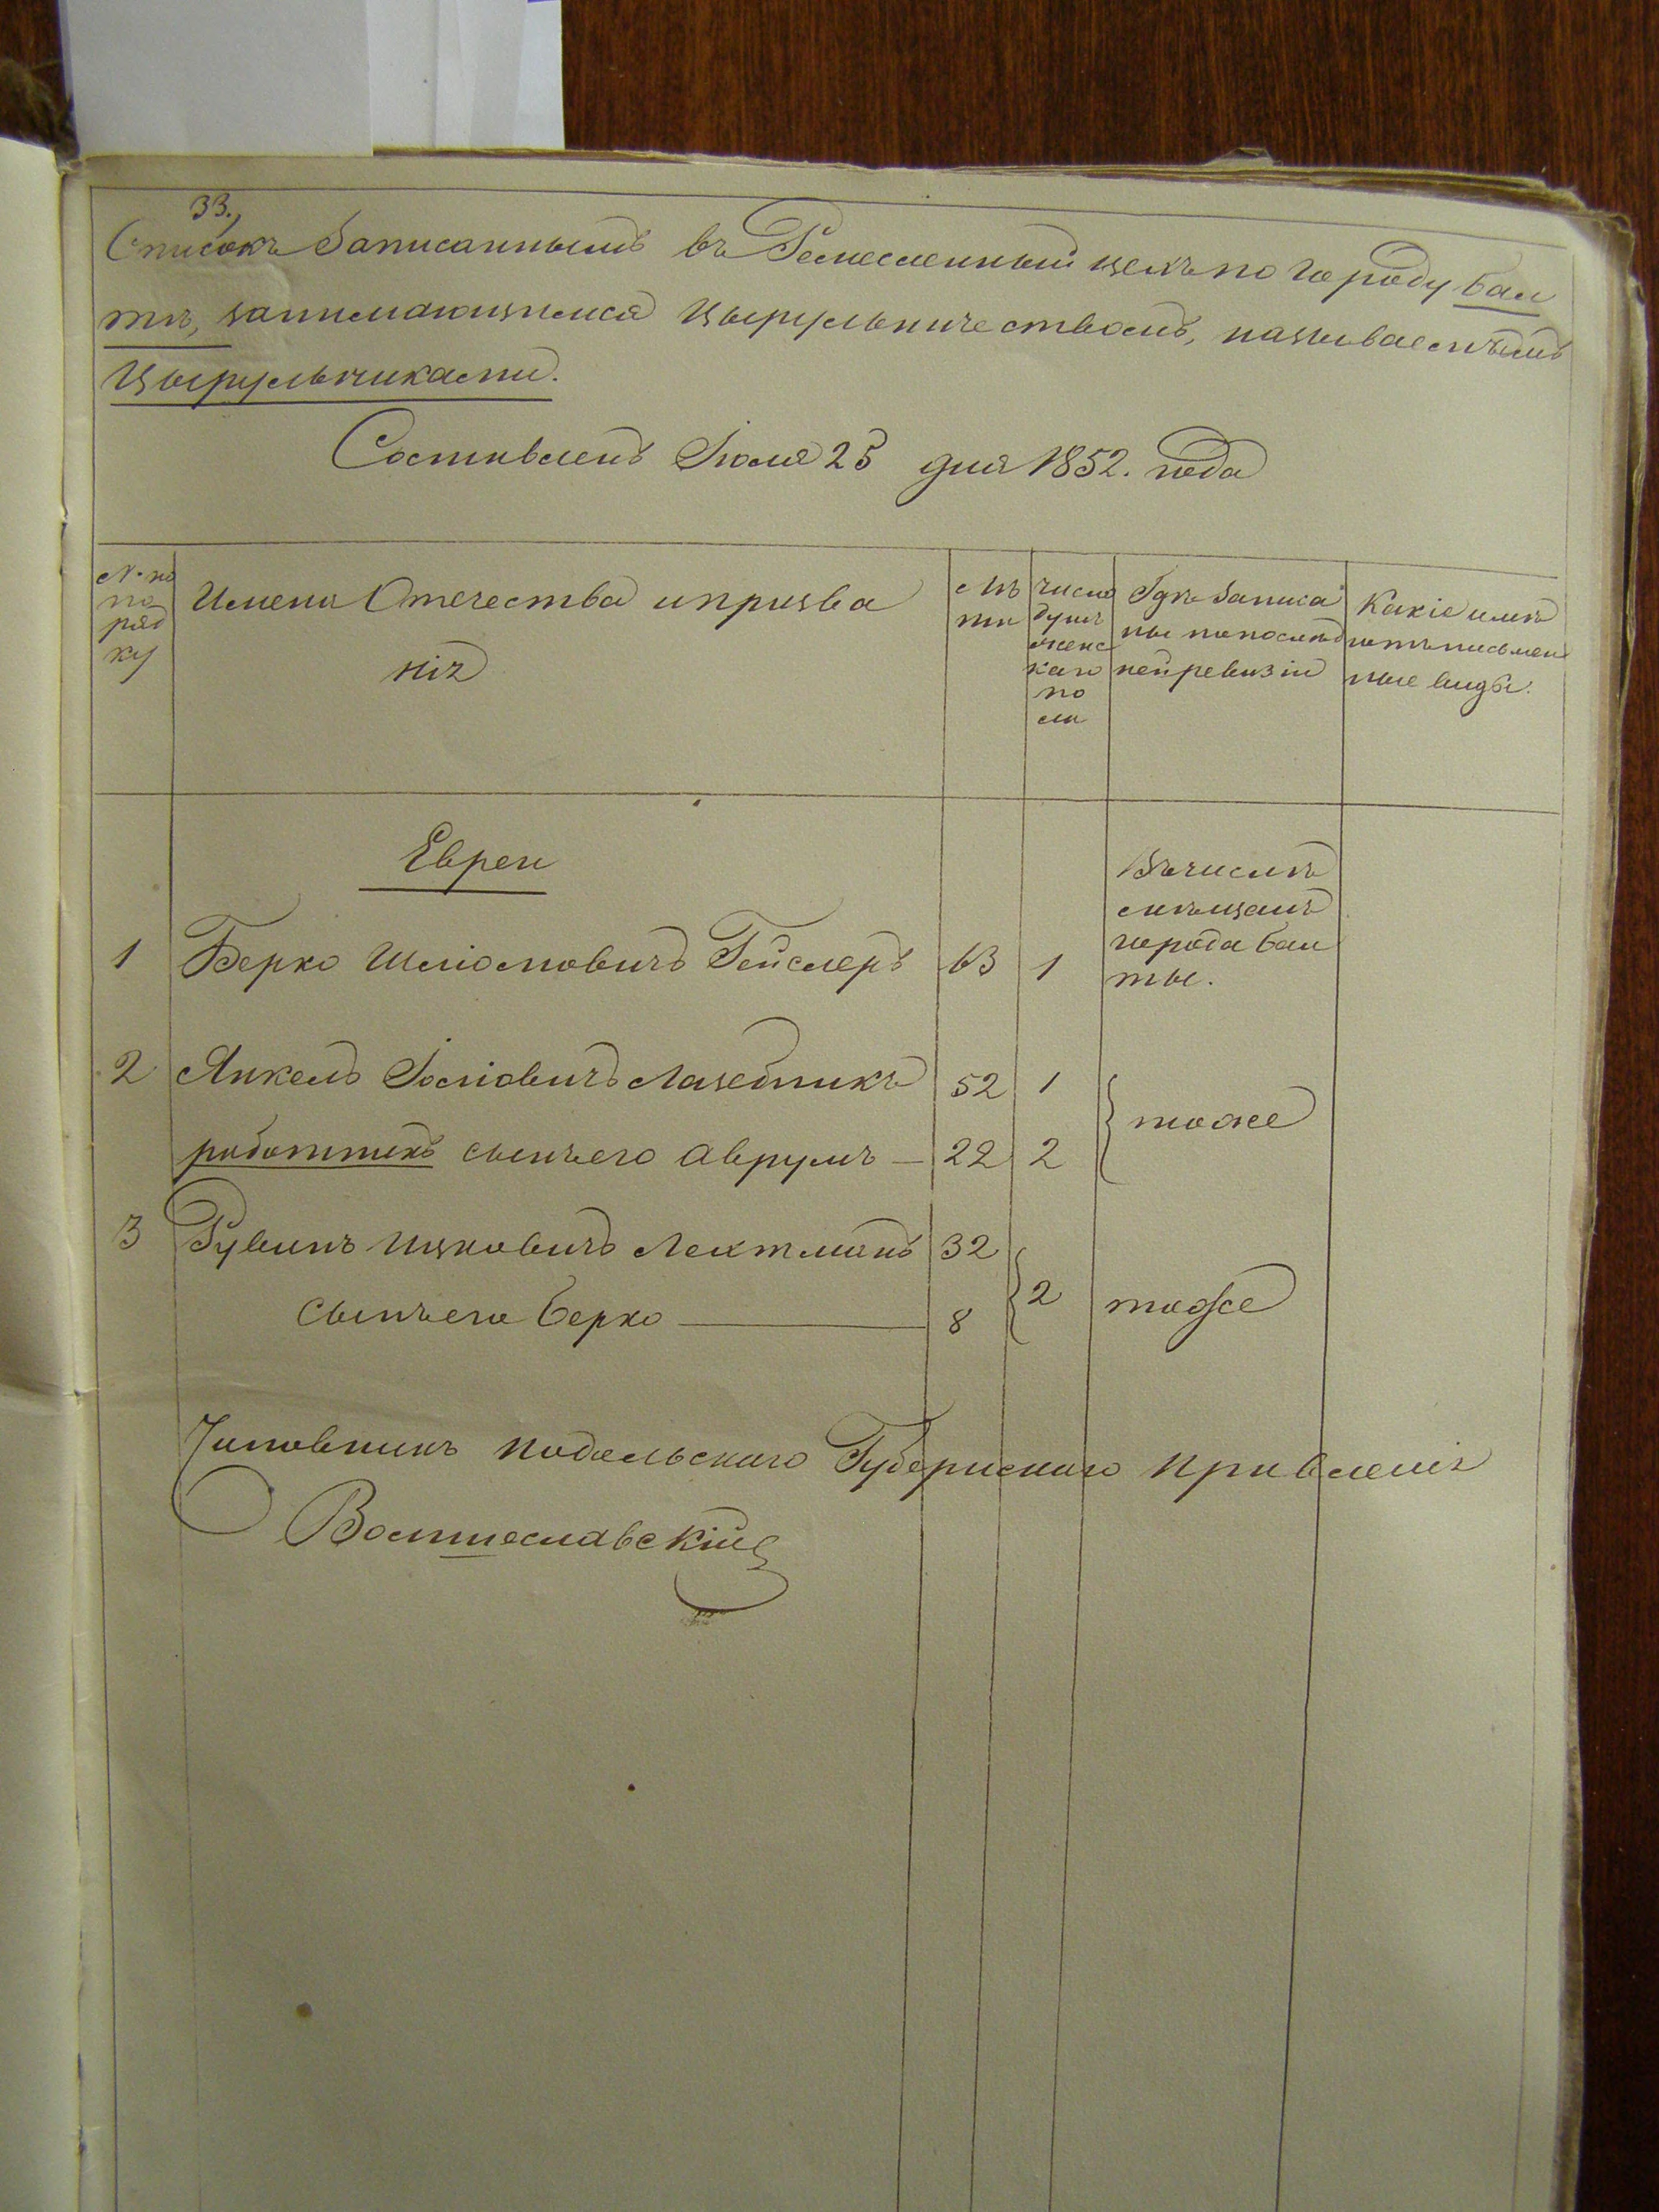 33.
Списокъ Записаннымъ въ Ремесленный цехъ по городу Бал
тѣ, занимающимся Цырульничествомъ, называемымъ
Цырульниками.
Составленъ Іюля 25 дня 1852. года
№ по
по
ряд
ку
Имена Отечества и прозва
нія
Лѣ
та
число
душъ
женс
каго
по
ла
Гдѣ Записа
ны по послѣд
ней ревизіи
Какіе имѣ
ютъ письмен
ные виды.
Евреи
Въ числѣ
мѣщанъ
города Бал
ты.
1 Берко Шліомовичъ Гейслеръ 63 1
2 Янкель Іосіовичъ Лазебникъ 52 1
тоже
работникъ сынъ его Аврумъ — 22 2
3 Рувинъ Ицковичъ Лехтманъ 32
2 тоже
сынъ его Берко — 8
Чиновникъ Подольскаго Губернскаго Правленія